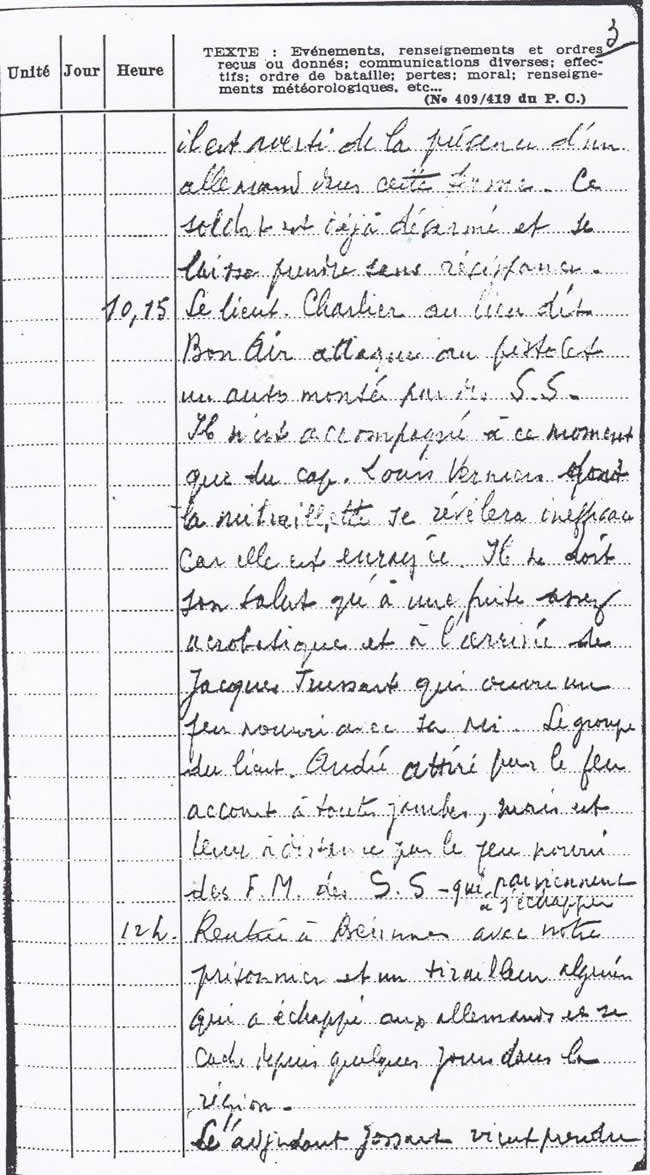 3
TEXTE : Evénements, renseignements et ordres
reçus ou donnés; communications diverses; effec-
tifs; ordre de bataille; pertes; moral; renseigne-
ments météorologiques, etc...
(No 409/419 du P. C.)
Unité Jour Heure
il est averti de la présence d'un
allemand dans cette ferme. Ce
soldat est déjà désarmé et se
laisse prendre sans résistance.
10,15 Le lieut. Charlier au lieu dit
Bon Air attaque au pistolet
un auto montée par des S.S.
Il n'est accompagné à ce moment
que du cap. Louis dont
la mitraillette se révèlera inefficace
car elle est enrayée. Il ne doit
son salut qu'à une fuite assez
acrobatique et à l'arrivée de
Jacques qui ouvre un
feu nourri avec sa
Le groupe
du lieut. André attiré par le feu
accourt à toutes jambes, mais est
tenu à distance par le feu nourri
des F.M. des S.S - qui parviennent
à s'échapper
12h. Rentrée à avec notre
prisonnier et un tirailleur algérien
qui a échappé aux allemands et se
cache depuis quelques jours dans la
région.
L'adjudant vient prendre